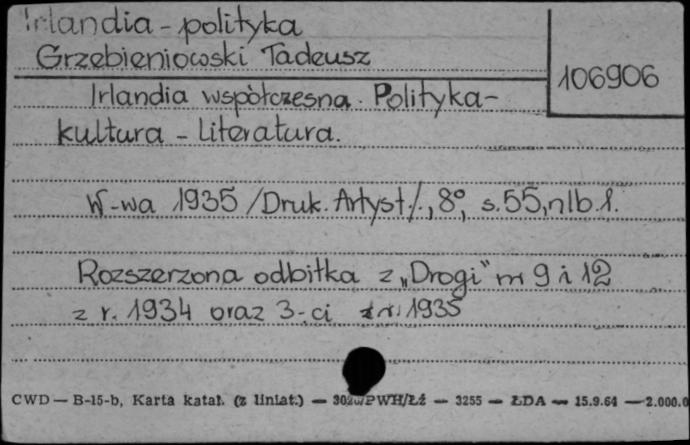 Irlandia - polityka
Grzebieniowski Tadeusz
106906
Irlandia współczesna. Polityka-
kultura - literatura.
W-wa 1935 /Druk. Artyst./, 8°, s. 55, nlb. 1.
Rozszerzona odbitka z „Drogi" nr 9 i 12
z r. 1934 oraz 3-ci z r. 1935
CWD — B-15-b, Karta katal. (z liniat.) — PWH/Łź — 3255 — ŁDA — 15.9.64 — 2.000.0